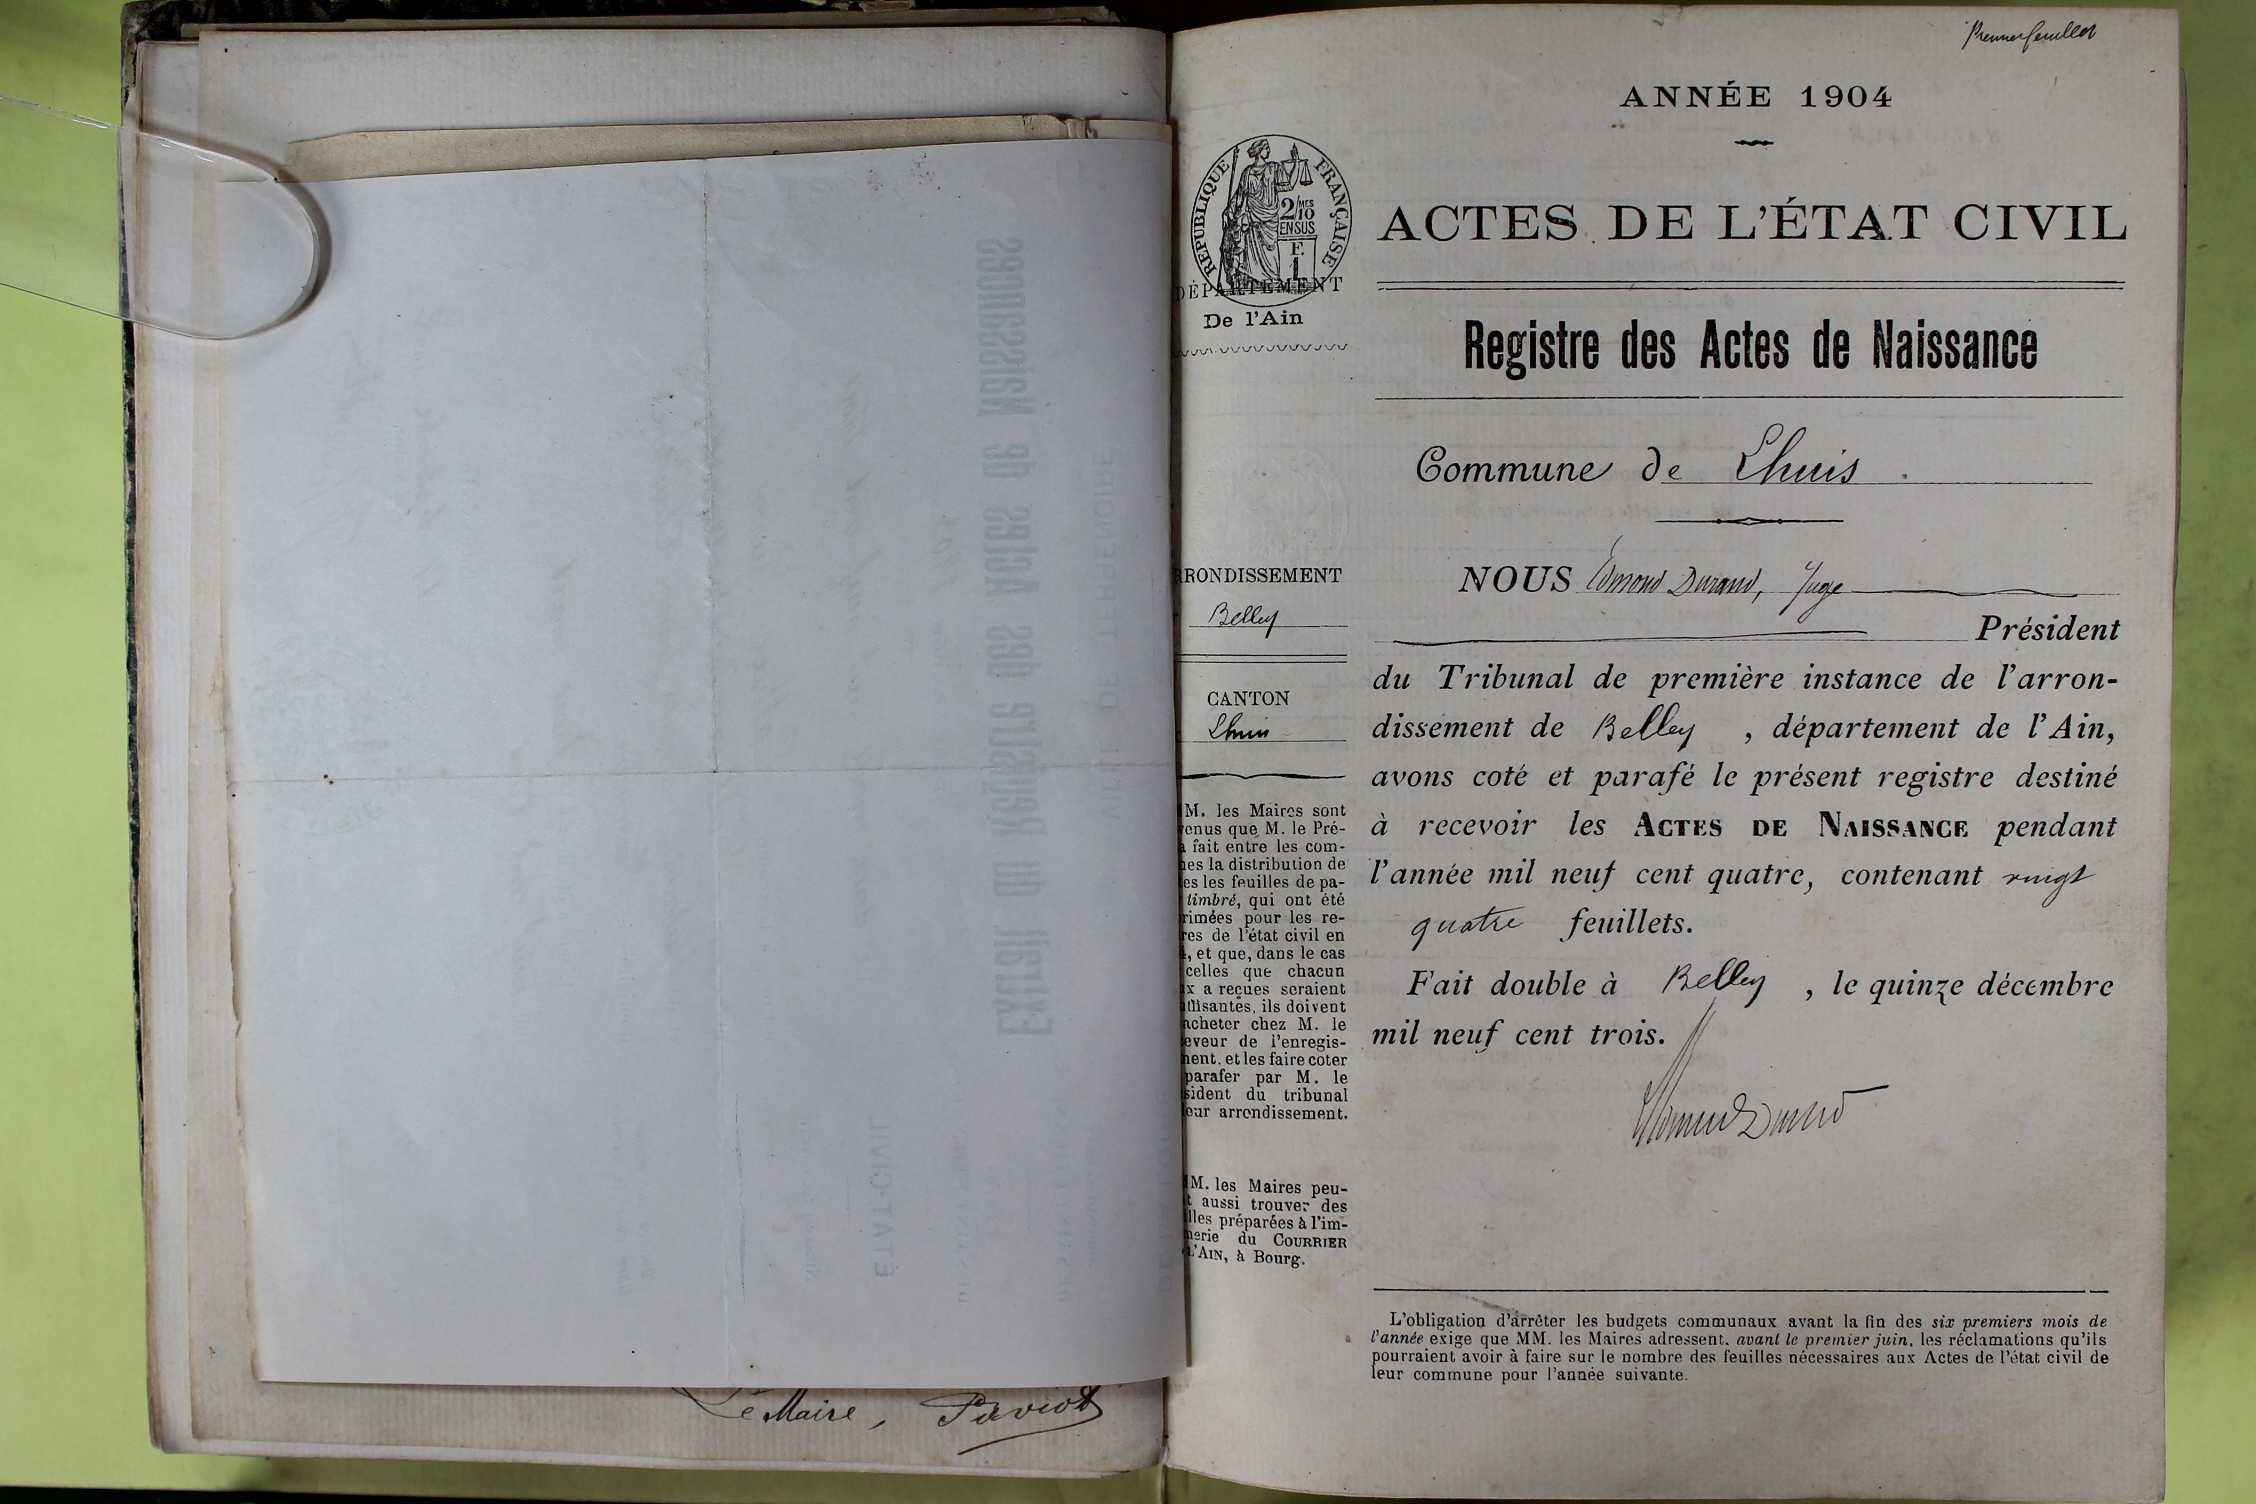 Le Maire, Paviot
Premier feuillet
ANNÉE 1904
RÉPUBLIQUE FRANÇAISE
2/10 MES
EN SUS
F.
1
ACTES DE L'ÉTAT CIVIL
DÉPARTEMENT
De l'Ain
Registre des Actes de Naissance
Commune de Lhuis.
ARRONDISSEMENT
Belley
CANTON
Lhuis
M. les Maires sont
venus que M. le Pré-
a fait entre les com-
nes la distribution de
es les feuilles de pa-
timbré, qui ont été
rimées pour les re-
res de l'état civil en
4, et que, dans le cas
celles que chacun
ux a reçues seraient
uffisantes, ils doivent
acheter chez M. le
eveur de l'enregis-
ment, et les faire coter
parafer par M. le
sident du tribunal
leur arrondissement.
MM. les Maires peu-
t aussi trouver des
illes préparées à l'im-
merie du COURRIER
L'AIN, à Bourg.
NOUS Edmond Durand, Juge
Président
du Tribunal de première instance de l'arron-
dissement de Belley, département de l'Ain,
avons coté et parafé le présent registre destiné
à recevoir les ACTES DE NAISSANCE pendant
l'année mil neuf cent quatre, contenant vingt
quatre feuillets.
Fait double à Belley, le quinze décembre
mil neuf cent trois.
Edmond Durand
L'obligation d'arrêter les budgets communaux avant la fin des six premiers mois de
l'année exige que MM. les Maires adressent, avant le premier juin, les réclamations qu'ils
pourraient avoir à faire sur le nombre des feuilles nécessaires aux Actes de l'état civil de
leur commune pour l'année suivante.
Extrait du Registre des Actes de Naissances
ÉTAT-CIVIL